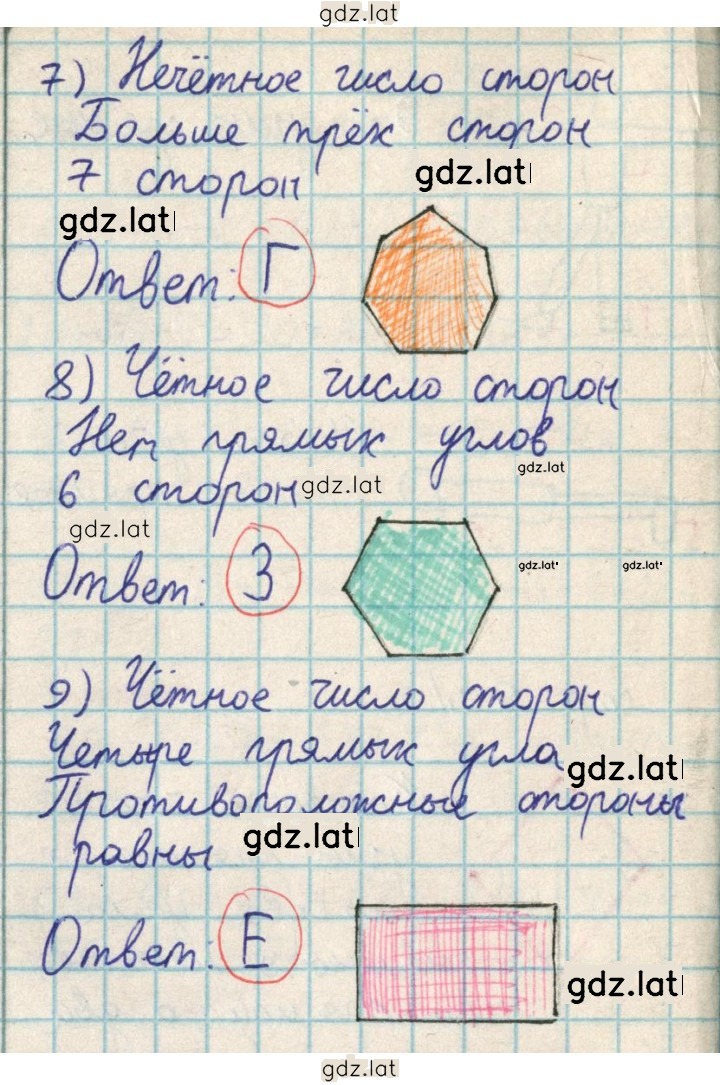 gdz.lat
7) Нечётное число сторон
Больше трёх сторон
gdz.lat
7 сторон
gdz.lat
Ответ: Г
8) Чётное число сторон
Нет прямых углов
gdz.lat
6 сторон gdz.lat
gdz.lat
Ответ: З
gdz.lat gdz.lat
9) Чётное число сторон
Четыре прямых угла
gdz.lat
Противоположные стороны
равны gdz.lat
Ответ: Е
gdz.lat
gdz.lat